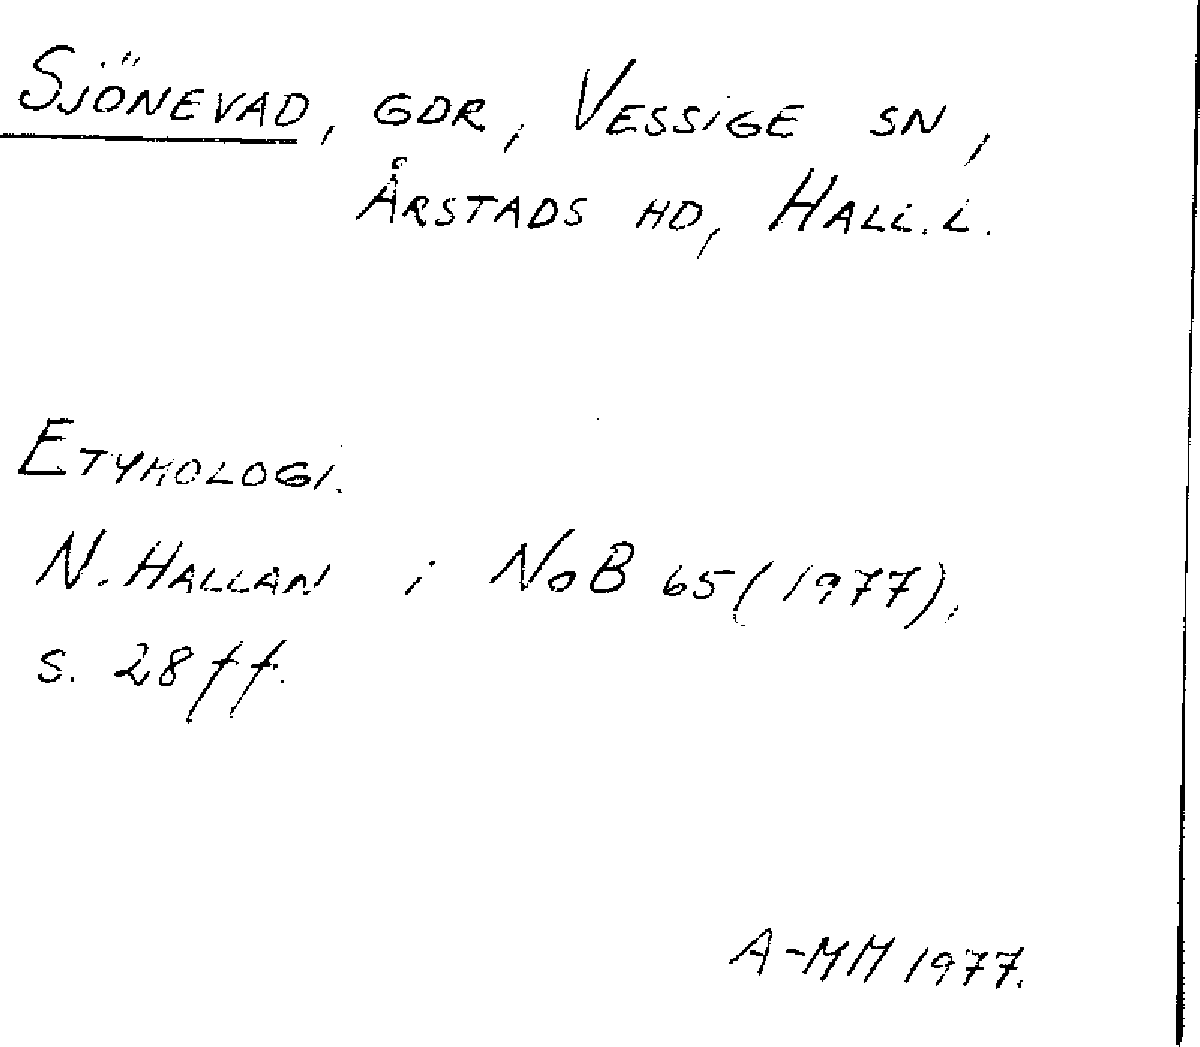 SJÖNEVAD, GDR, VESSIGE SN,
ÅRSTADS HD, HALL.L.
ETYMOLOGI.
N. HALLAN i NoB 65 (1977),
s. 28 ff.
A-MM 1977.